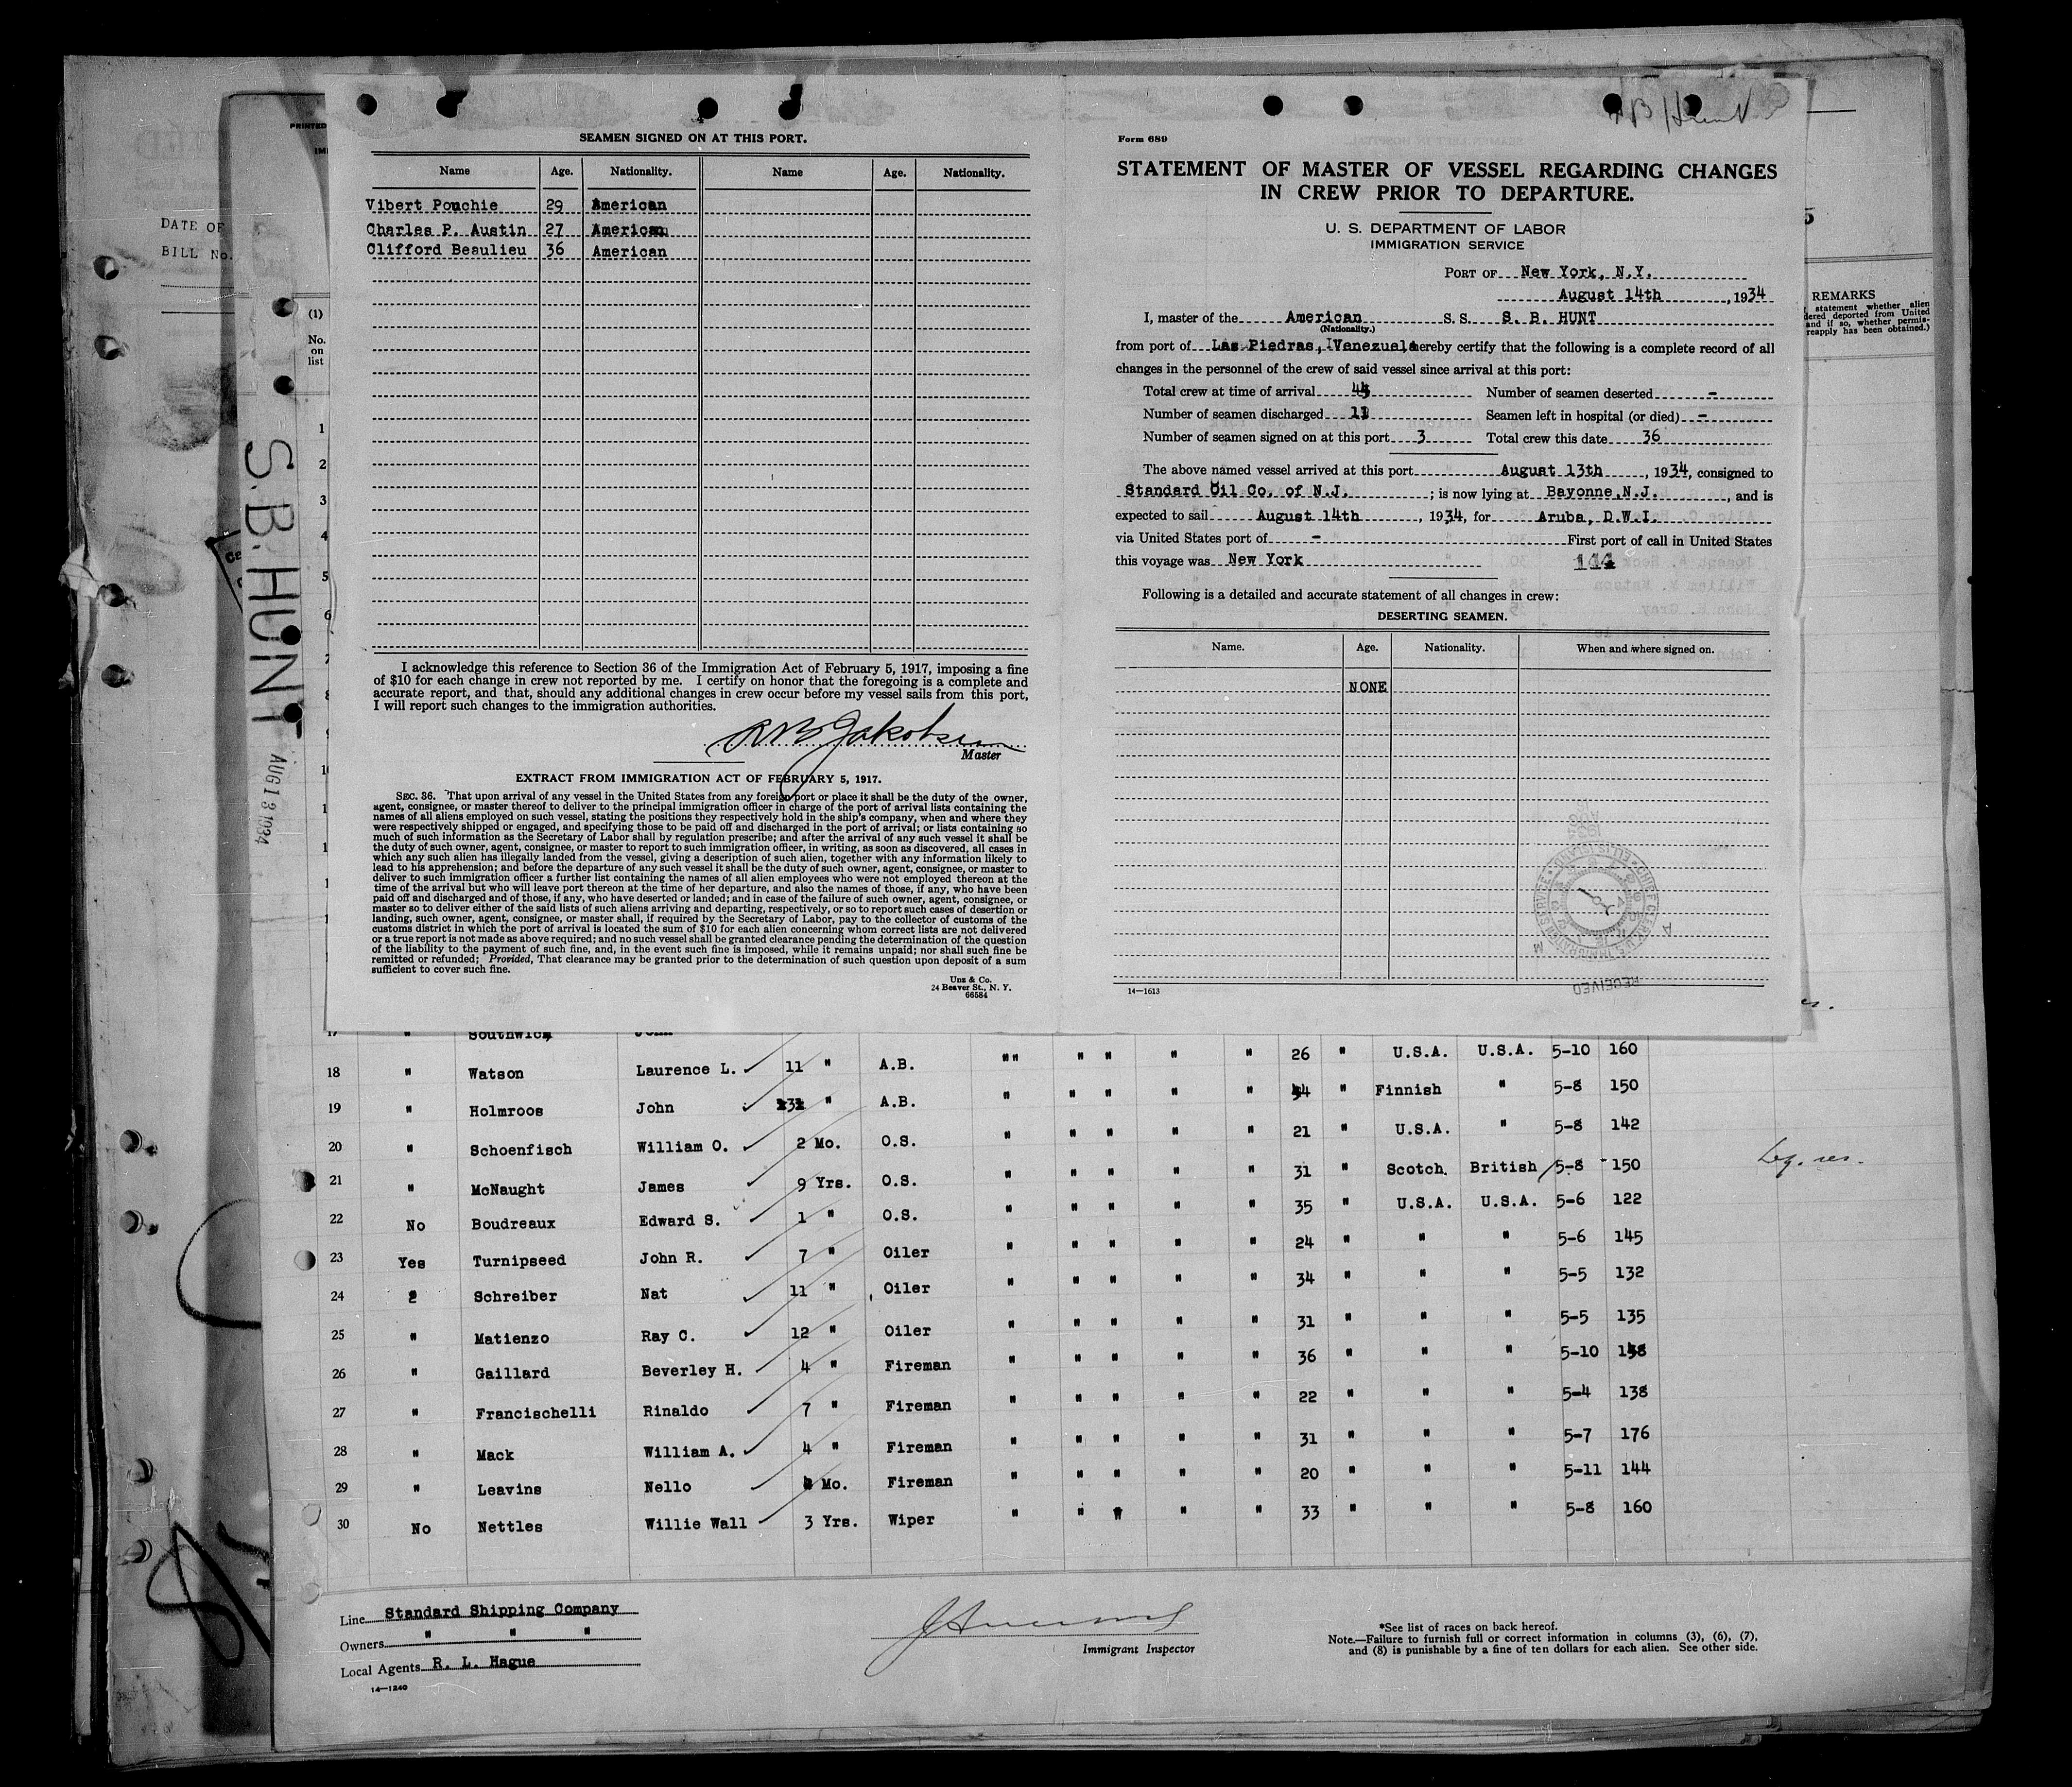 SEAMEN SIGNED ON AT THIS PORT.
Name Age. Nationality. Name Age. Nationality.
Vibert Pouchie 29 American
Charles P. Austin 27 American
Clifford Beaulieu 36 American
I acknowledge this reference to Section 36 of the Immigration Act of February 5, 1917, imposing a fine
of $10 for each change in crew not reported by me. I certify on honor that the foregoing is a complete and
accurate report, and that, should any additional changes in crew occur before my vessel sails from this port,
I will report such changes to the immigration authorities.
Master
EXTRACT FROM IMMIGRATION ACT OF FEBRUARY 5, 1917.
SEC. 36. That upon arrival of any vessel in the United States from any foreign port or place it shall be the duty of the owner,
agent, consignee, or master thereof to deliver to the principal immigration officer in charge of the port of arrival lists containing the
names of all aliens employed on such vessel, stating the positions they respectively hold in the ship's company, when and where they
were respectively shipped or engaged, and specifying those to be paid off and discharged in the port of arrival; or lists containing so
much of such information as the Secretary of Labor shall by regulation prescribe; and after the arrival of any such vessel it shall be
the duty of such owner, agent, consignee, or master to report to such immigration officer, in writing, as soon as discovered, all cases in
which any such alien has illegally landed from the vessel, giving a description of such alien, together with any information likely to
lead to his apprehension; and before the departure of any such vessel it shall be the duty of such owner, agent, consignee, or master to
deliver to such immigration officer a further list containing the names of all alien employees who were not employed thereon at the
time of the arrival but who will leave port thereon at the time of her departure, and also the names of those, if any, who have been
paid off and discharged and of those, if any, who have deserted or landed; and in case of the failure of such owner, agent, consignee, or
master so to deliver either of the said lists of such aliens arriving and departing, respectively, or so to report such cases of desertion or
landing, such owner, agent, consignee, or master shall, if required by the Secretary of Labor, pay to the collector of customs of the
customs district in which the port of arrival is located the sum of $10 for each alien concerning whom correct lists are not delivered
or a true report is not made as above required; and no such vessel shall be granted clearance pending the determination of the question
of the liability to the payment of such fine, and, in the event such fine is imposed, while it remains unpaid; nor shall such fine be
remitted or refunded; Provided, That clearance may be granted prior to the determination of such question upon deposit of a sum
sufficient to cover such fine.
Unz & Co.
24 Beaver St., N. Y.
66584
Form 689
STATEMENT OF MASTER OF VESSEL REGARDING CHANGES
IN CREW PRIOR TO DEPARTURE.
U. S. DEPARTMENT OF LABOR
IMMIGRATION SERVICE
PORT OF New York, N.Y.
August 14th, 1934
I, master of the American S. S. S. B. HUNT
(Nationality.)
from port of Las Piedras, Venezuela hereby certify that the following is a complete record of all
changes in the personnel of the crew of said vessel since arrival at this port:
Total crew at time of arrival Number of seamen deserted -
Number of seamen discharged 11 Seamen left in hospital (or died) -
Number of seamen signed on at this port 3 Total crew this date 36
The above named vessel arrived at this port August 13th, 1934, consigned to
Standard Oil Co. of N.J. ; is now lying at Bayonne, N.J., and is
expected to sail August 14th, 1934, for Aruba, D.W.I.
via United States port of - First port of call in United States
this voyage was New York 144
Following is a detailed and accurate statement of all changes in crew:
DESERTING SEAMEN.
Name. Age. Nationality. When and where signed on.
NONE
14—1613
RECEIVED
PRINTED
DATE OF
BILL No.
S.B. HUNT
AUG 13 1934
(1)
No.
on
list
1
2
3
4
5
6
REMARKS
statement whether alien
dered deported from United
and if so, whether permis-
reapply has been obtained.)
17 " Southwick John
18 " Watson Laurence L. 11 " A.B. "" " " " " 26 " U.S.A. U.S.A. 5-10 160
19 " Holmroos John " A.B. " " " " " " Finnish " 5-8 150
20 " Schoenfisch William O. 2 Mo. O.S. " " " " " 21 " U.S.A. " 5-8 142
21 " McNaught James 9 Yrs. O.S. " " " " " 31 " Scotch. British 5-8 150 Leg. res.
22 No Boudreaux Edward S. 1 " O.S. " " " " " 35 " U.S.A. U.S.A. 5-6 122
23 Yes Turnipseed John R. 7 " Oiler " " " " " 24 " " " 5-6 145
24 Schreiber Nat 11 " Oiler " " " " " 34 " " " 5-5 132
25 " Matienzo Ray C. 12 " Oiler " " " " " 31 " " " 5-5 135
26 " Gaillard Beverley H. 4 " Fireman " " " " " 36 " " " 5-10
27 " Francischelli Rinaldo 7 " Fireman " " " " " 22 " " " 5-4 138
28 " Mack William A. 4 " Fireman " " " " " 31 " " " 5-7 176
29 " Leavins Nello Mo. Fireman " " " " " 20 " " " 5-11 144
30 No Nettles Willie Wall 3 Yrs. Wiper " " " " " 33 " " " 5-8 160
Line Standard Shipping Company
Owners " " "
Local Agents R. L. Hague
14—1240
Immigrant Inspector
*See list of races on back hereof.
Note.—Failure to furnish full or correct information in columns (3), (6), (7),
and (8) is punishable by a fine of ten dollars for each alien. See other side.